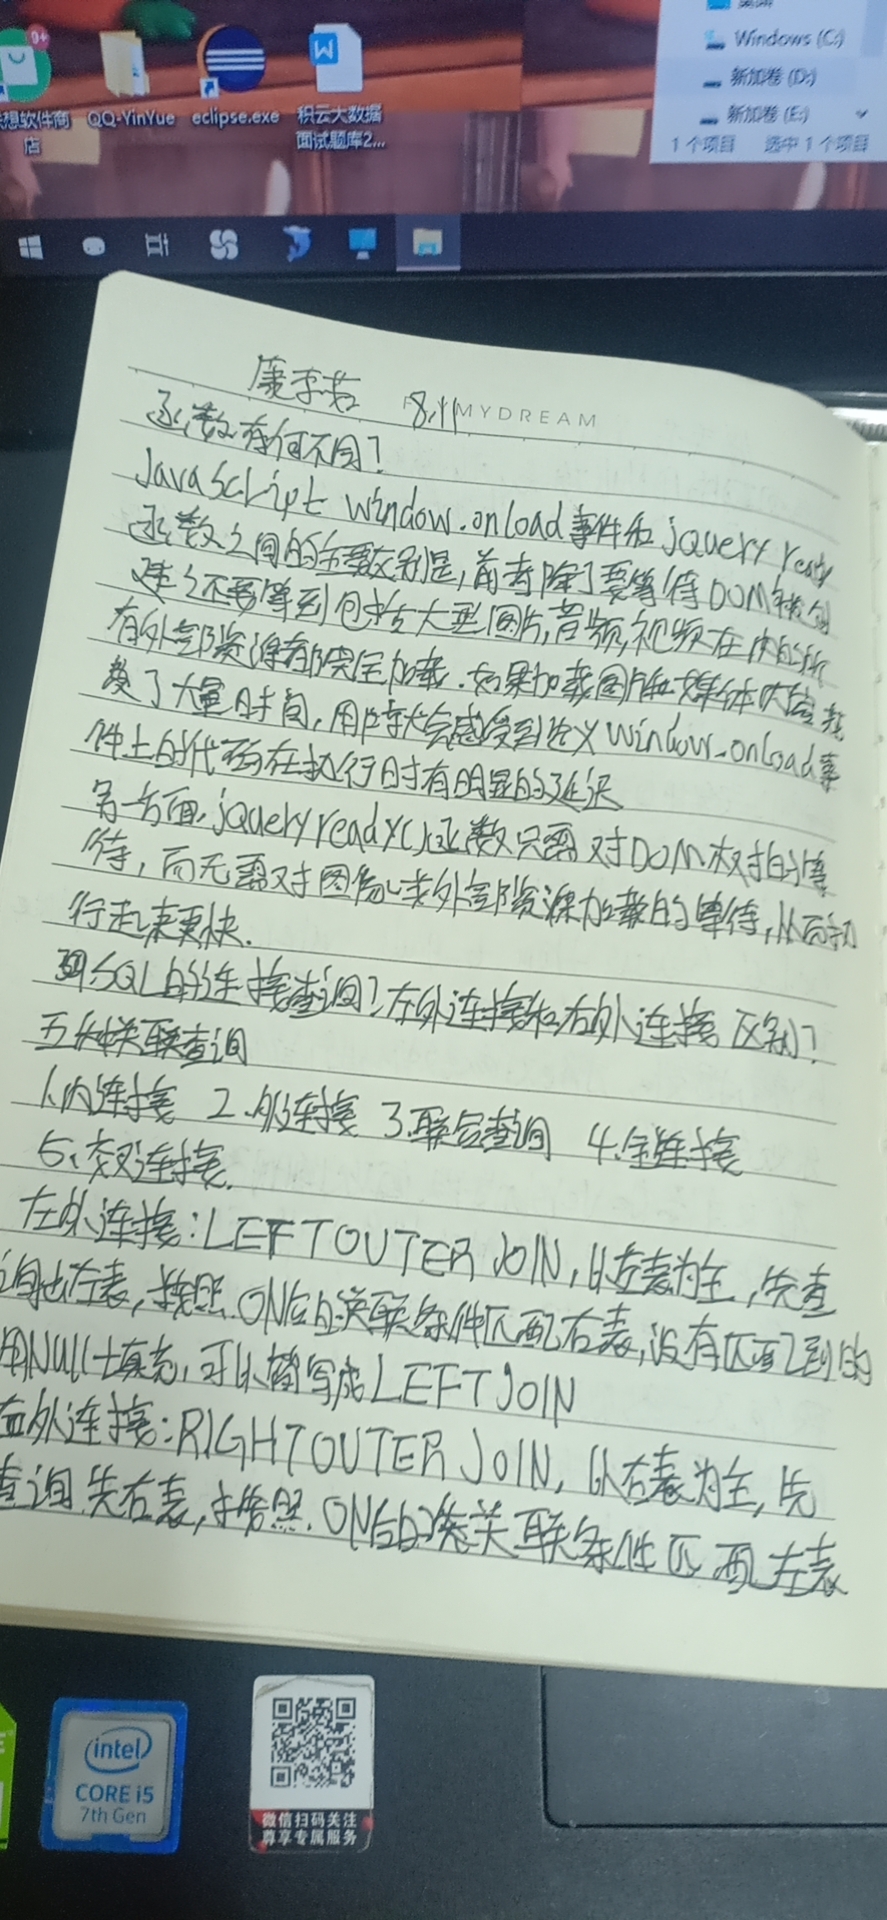 桌面
Windows (C:)
新加卷 (D:)
新加卷 (E:)
1 个项目 选中 1 个项目
9+
想软件商店
QQ-YinYue
eclipse.exe
积云大数据
面试题库2...
8.11 MYDREAM
函数有何不同?
JavaScript window.onload事件和jquery ready
函数之间的主要区别是,前者除了要等待DOM被创
建还要等到包括大型图片,音频,视频在内的所
有外部资源都完全加载.如果加载图片和媒体内容花
费了大量时间,用户就会感受到定义window.onload事
件上的代码在执行时有明显的延迟
另一方面,jquery ready()函数只需对DOM树的等
待,而无需对图像或外部资源加载的等待,从而执
行起来更快.
39.SQL的连接查询?左外连接和右外连接区别?
五种关联查询
1.内连接 2.外连接 3.联合查询 4.全连接
5、交叉连接.
左外连接:LEFT OUTER JOIN,以左表为主,先查
询出左表,按照ON后的关联条件匹配右表,没有匹配到的
用NULL填充,可以简写成LEFT JOIN
右外连接:RIGHT OUTER JOIN,以右表为主,先
查询先右表,按照.ON后的关联条件匹配左表
intel
CORE i5
7th Gen
微信扫码关注
尊享专属服务